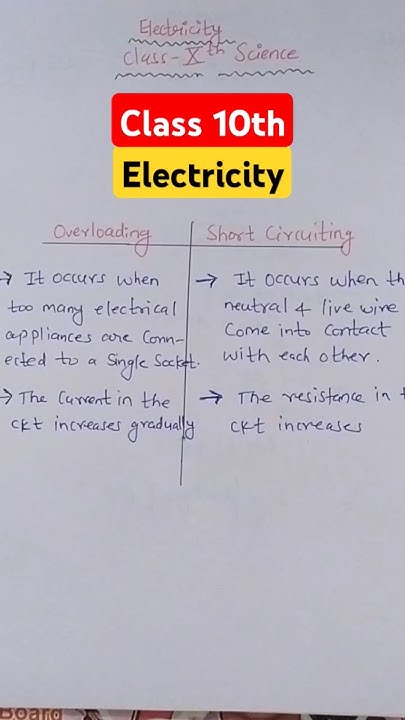 Electricity
Class-Xth Science
Class 10th
Electricity
Overloading
Short Circuiting
→ It occurs when
too many electrical
appliances are Conn-
ected to a Single Socket.
→ The Current in the
cKt increases gradually
→ It occurs when th
neutral & live wire
Come into Contact
with each other.
→ The resistance in t
cKt increases
Board